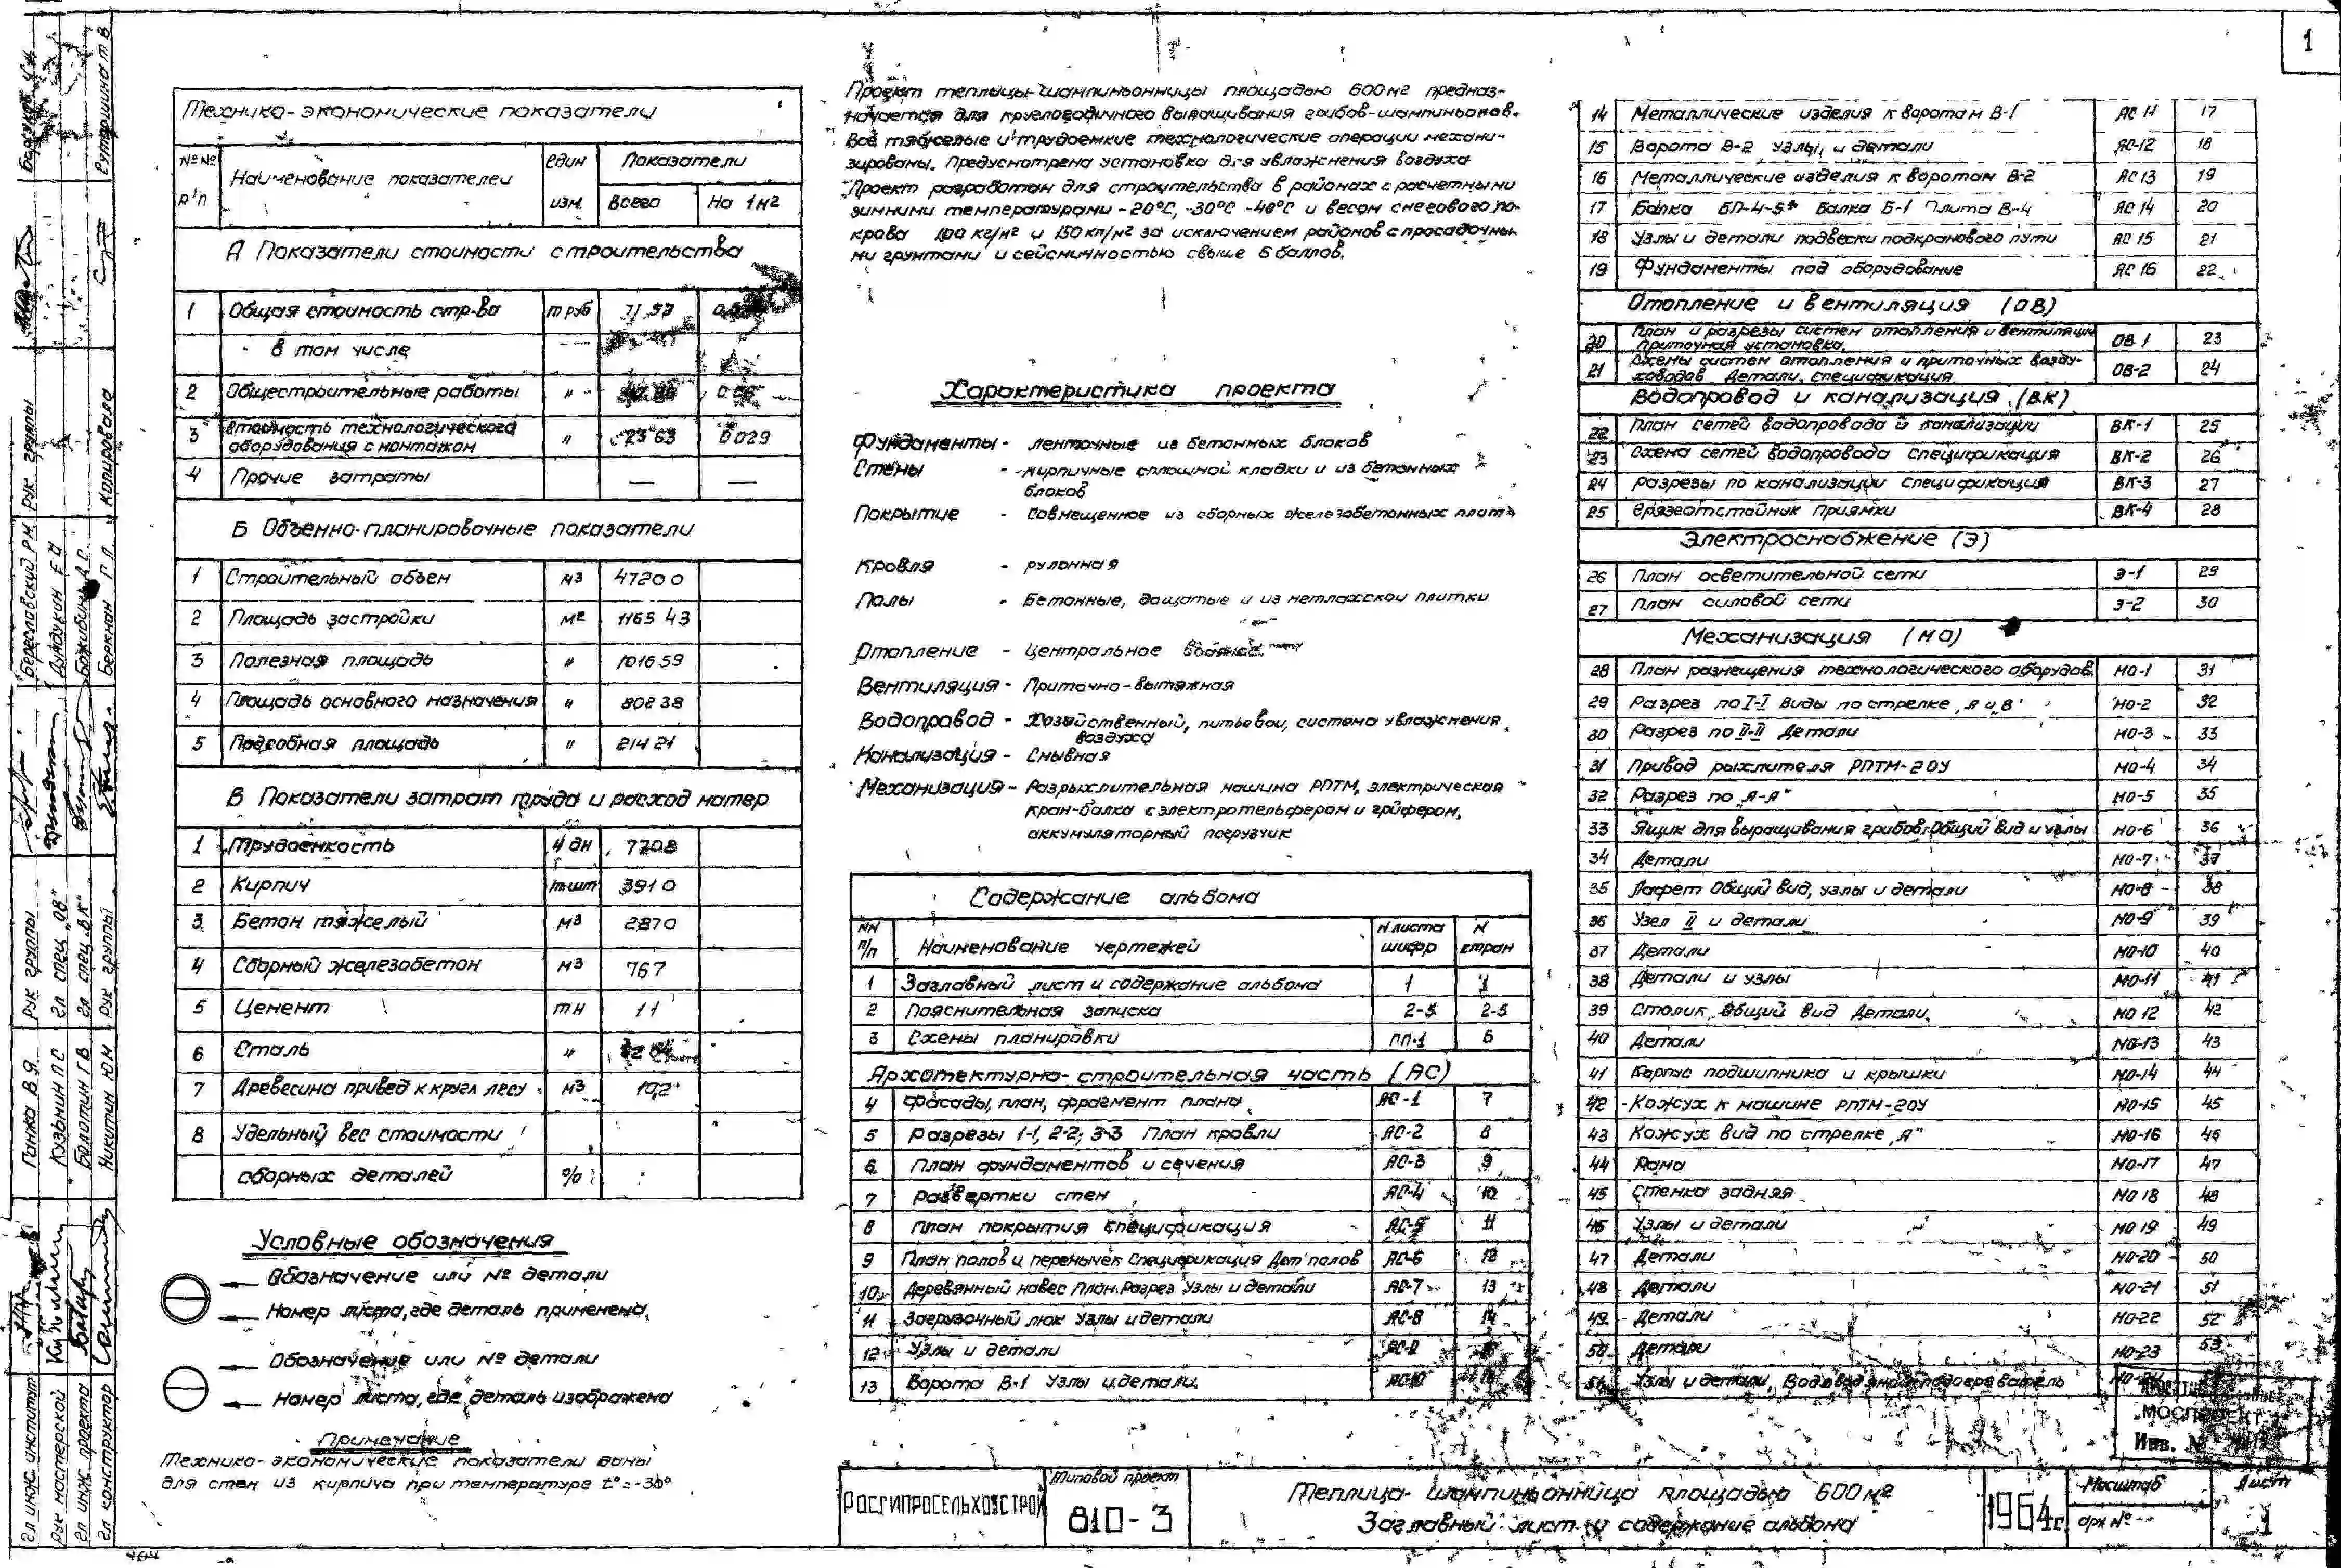 1
Технико-экономические показатели
№№ п/п
Наименование показателей
един изм.
Показатели
Всего
На 1м2
А Показатели стоимости строительства
1 Общая стоимость стр-ва т руб 71.53
в том числе
2 Общестроительные работы "
3 Стоимость технологического оборудования с монтажом " 23 63 0 029
4 Прочие затраты — —
Б Объемно-планировочные показатели
1 Строительный объем м3 4720 0
2 Площадь застройки м2 1165 43
3 Полезная площадь " 1016 59
4 Площадь основного назначения " 802 38
5 Подсобная площадь " 214 21
В Показатели затрат труда и расход матер
1 Трудоемкость ч дн 7708
2 Кирпич т шт 391 0
3 Бетон тяжелый м3 287 0
4 Сборный железобетон м3 767
5 Цемент тн 11
6 Сталь "
7 Древесина привед к кругл лесу м3 19,2
8 Удельный вес стоимости
сборных деталей %
Условные обозначения
Обозначение или № детали
Номер листа, где деталь применена.
Обозначение или № детали
Номер листа, где деталь изображена
Примечание
Технико-экономические показатели даны
для стен из кирпича при температуре t°=-30°
Проект теплицы-шампиньонницы площадью 600м2 предназ-
начается для круглогодичного выращивания грибов-шампиньонов.
Все тяжелые и трудоемкие технологические операции механи-
зированы. Предусмотрена установка для увлажнения воздуха
Проект разработан для строительства в районах с расчетными
зимними температурами -20°С, -30°С -40°С и весом снегового по-
крова 100 кг/м2 и 150 кг/м2 за исключением районов с просадочны-
ми грунтами и сейсмичностью свыше 6 баллов.
Характеристика проекта
Фундаменты - ленточные из бетонных блоков
Стены - кирпичные сплошной кладки и из бетонных
блоков
Покрытие - Совмещенное из сборных железобетонных плит
Кровля - рулонная
Полы - Бетонные, дощатые и из метлахской плитки
Отопление - Центральное водяное
Вентиляция - Приточно-вытяжная
Водопровод - Хозяйственный, питьевой, система увлажнения
воздуха
Канализация - Смывная
Механизация - Разрыхлительная машина РПТМ, электрическая
кран-балка с электротельфером и грейфером,
аккумуляторный погрузчик
Содержание альбома
NN п/п Наименование чертежей N листа шифр N стран
1 Заглавный лист и содержание альбома 1 1
2 Пояснительная записка 2-5 2-5
3 Схемы планировки ПП-1 6
Архитектурно-строительная часть (АС)
4 Фасады, план, фрагмент плана АС-1 7
5 Разрезы 1-1, 2-2; 3-3 План кровли АС-2 8
6 План фундаментов и сечения АС-3 9
7 Развертки стен АС-4 10
8 План покрытия спецификация АС-5 11
9 План полов и перемычек Спецификация Дет полов АС-6 12
10 Деревянный навес План. Разрез Узлы и детали АС-7 13
11 Загрузочный люк Узлы и детали АС-8 14
12 Узлы и детали АС-9
13 Ворота В-1 Узлы и детали. АС-10
14 Металлические изделия к воротам В-1 АС 11 17
15 Ворота В-2 Узлы и детали АС-12 18
16 Металлические изделия к воротам В-2 АС 13 19
17 Балка БП-4-5* Балка Б-1 Плита В-4 АС 14 20
18 Узлы и детали подвески подкранового пути АС 15 21
19 Фундаменты под оборудование АС 16 22
Отопление и вентиляция (ОВ)
20 План и разрезы систем отопления и вентиляции Приточная установка. ОВ 1 23
21 Схемы систем отопления и приточных возду-ховодов Детали. Спецификация ОВ-2 24
Водопровод и канализация (ВК)
22 План сетей водопровода и канализации ВК-1 25
23 Схема сетей водопровода Спецификация ВК-2 26
24 Разрезы по канализации Спецификация ВК-3 27
25 Грязеотстойник Приямки ВК-4 28
Электроснабжение (Э)
26 План осветительной сети Э-1 29
27 План силовой сети Э-2 30
Механизация (МО)
28 План размещения технологического оборудов. МО-1 31
29 Разрез по I-I Виды по стрелке „А и „В" МО-2 32
30 Разрез по II-II Детали МО-3 33
31 Привод рыхлителя РПТМ-20У МО-4 34
32 Разрез по „А-А" МО-5 35
33 Ящик для выращивания грибов. Общий вид и узлы МО-6 36
34 Детали МО-7 37
35 Лафет Общий вид, узлы и детали МО-8 38
36 Узел II и детали МО-9 39
37 Детали МО-10 40
38 Детали и узлы МО-11 41
39 Столик. Общий вид Детали. МО 12 42
40 Детали МО-13 43
41 Корпус подшипника и крышки МО-14 44
42 Кожух к машине РПТМ-20У МО-15 45
43 Кожух вид по стрелке „А" МО-16 46
44 Рама МО-17 47
45 Стенка задняя МО 18 48
46 Узлы и детали МО 19 49
47 Детали МО-20 50
48 Детали МО-21 51
49 Детали МО-22 52
50 Детали МО-23 53
51 Узлы и детали, Водоводяной подогреватель
МОСПРОЕКТ
Инв. №
РОСГИПРОСЕЛЬХОЗСТРОЙ
Типовой проект
810-3
Теплица-шампиньонница площадью 600м2
Заглавный лист и содержание альбома
1964г
Масштаб
арх №
Лист
1
Гл инж. институт
Рук мастерской
Гл инж. проекта
Гл конструктор
Ганжа В Я
Кузьмин П С
Болотин Г В
Никитин Ю М
Рук группы
Гл спец „ОВ"
Гл спец „ВК"
Рук группы
Береславский Р М
Дундукин Е И
Божибин Д С
Беркман Г Л
Рук группы
Копировала